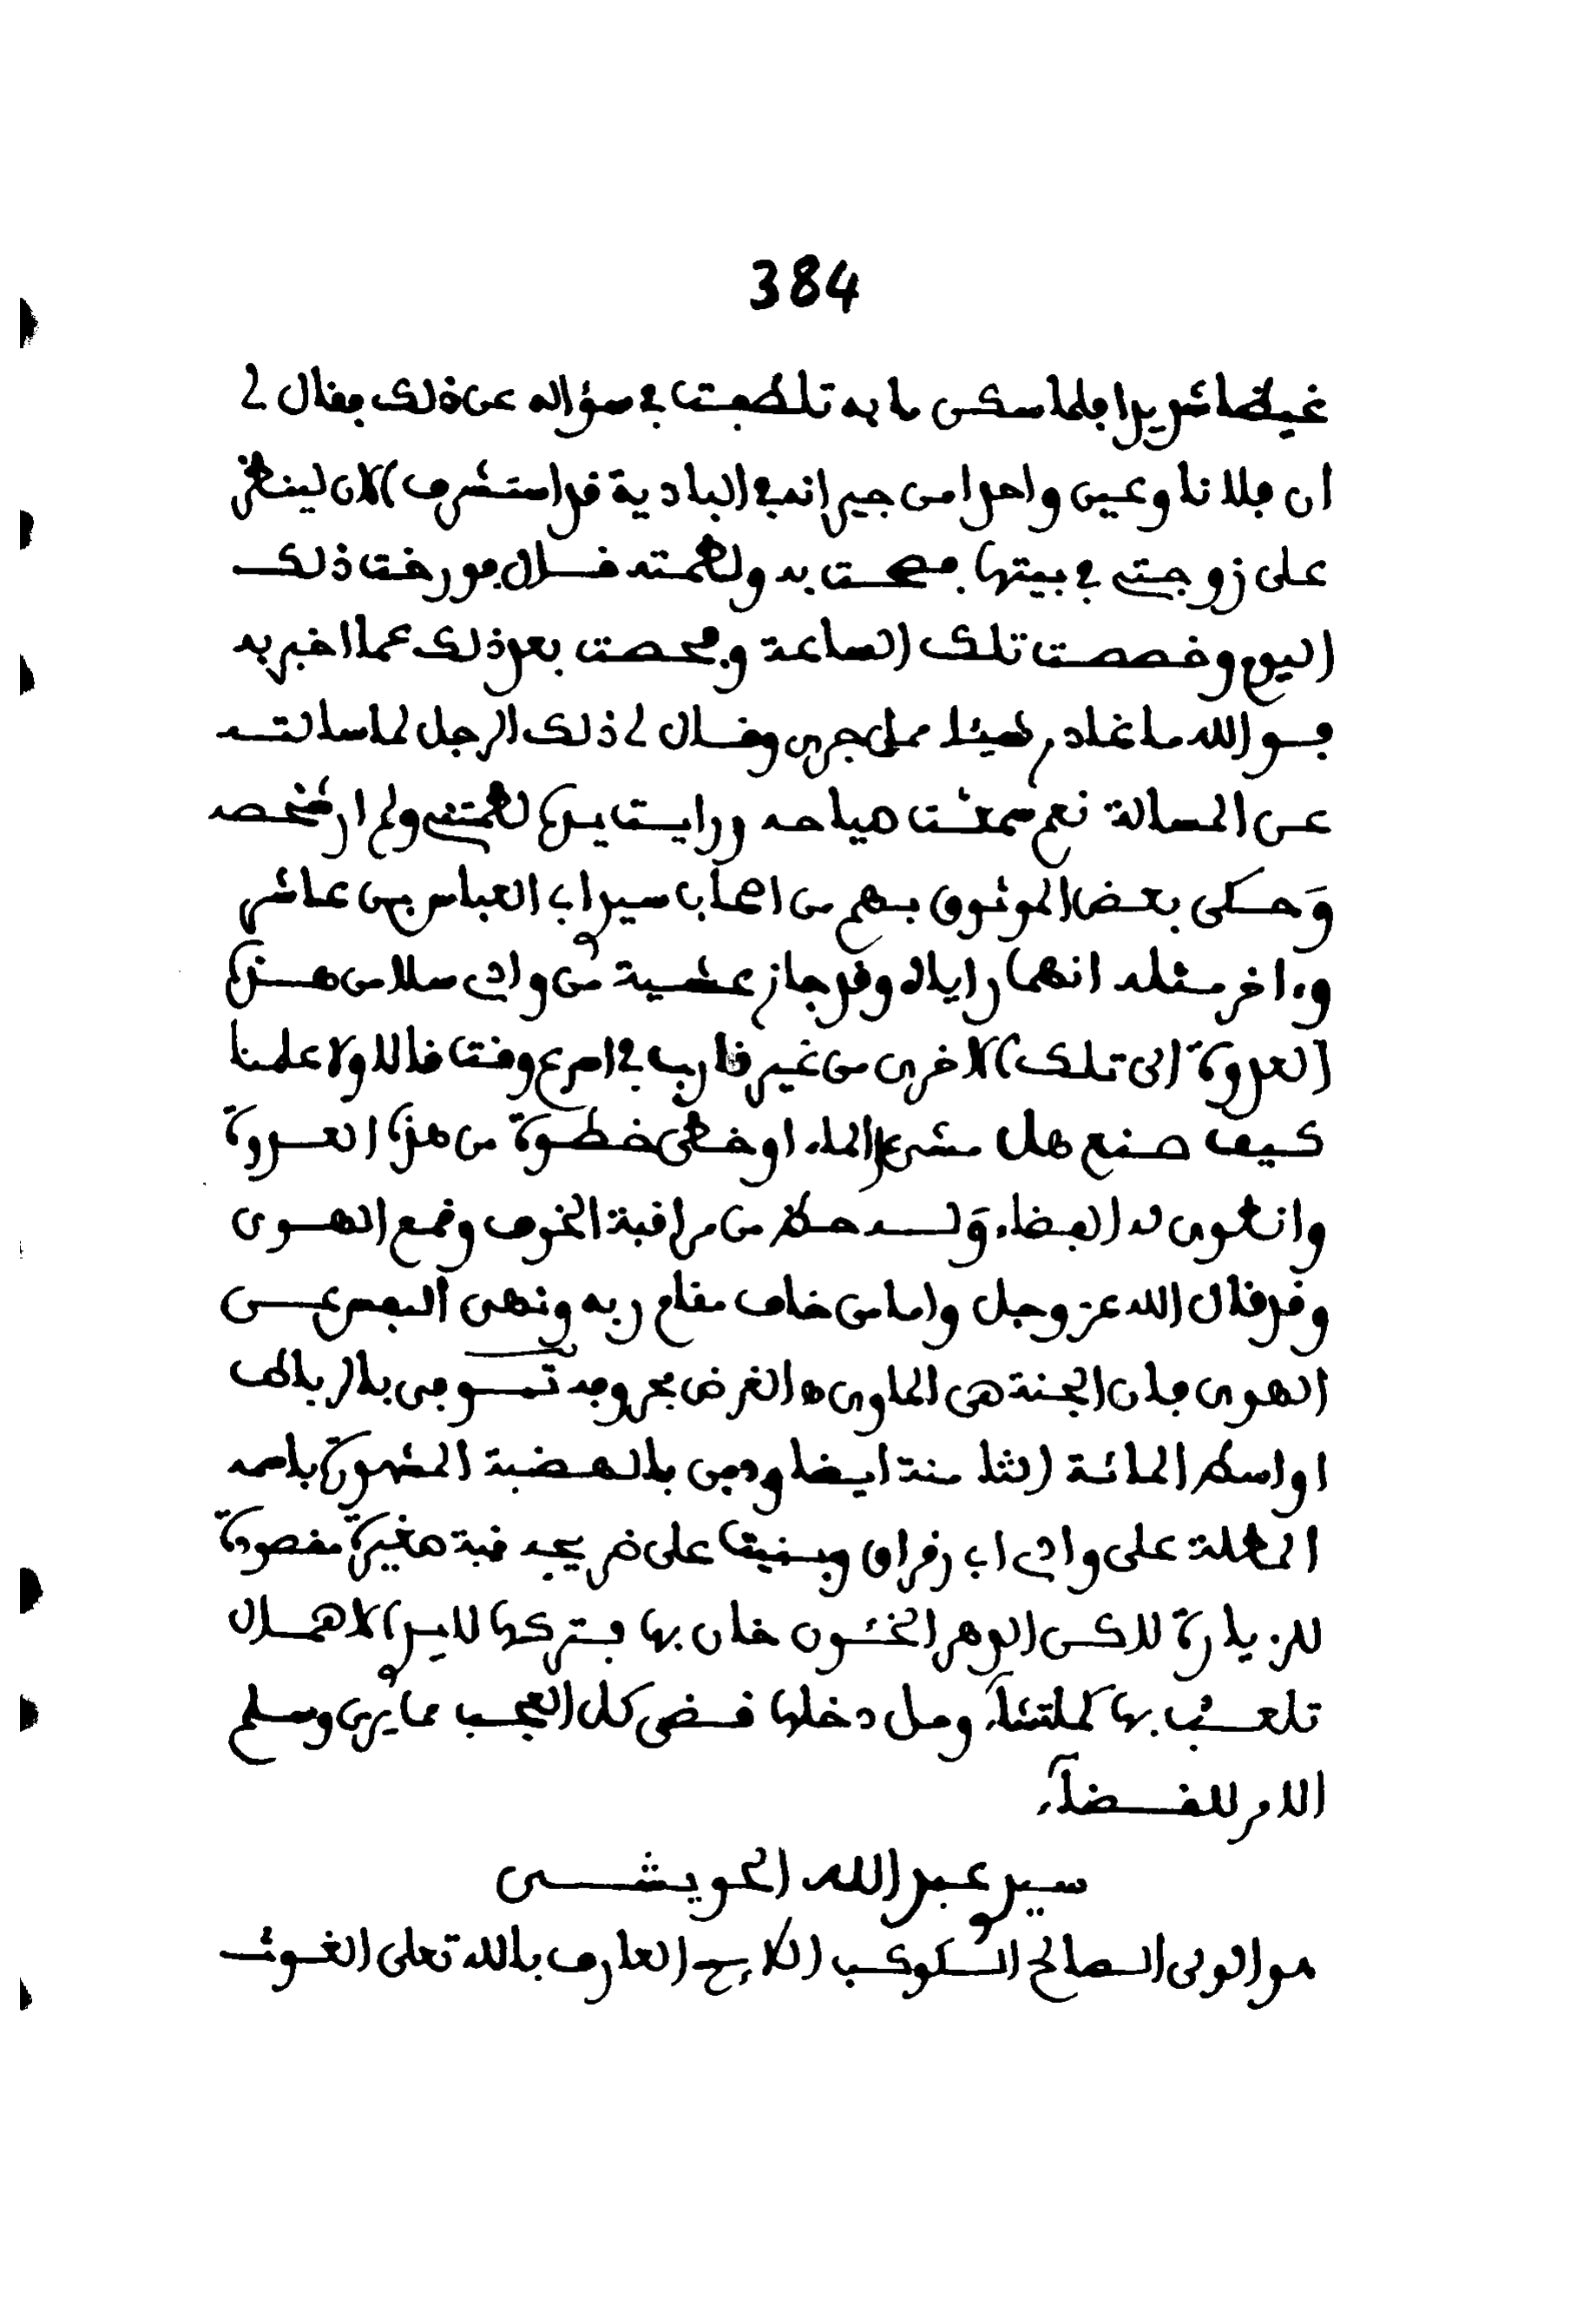 384
غيظا شديدا فلما سكن ما به تلطفت في سؤاله عن ذلك فقال لي
ان فلانا وعين واحدا من جيرانه في البادية قد استشرف الان لينظر
على زوجتي في بيتها فصحت به ولطمته قال فورخت ذلك
اليوم وخصصت تلك الساعة وفحصت بعد ذلك عما اخبر به
فوالله ما غادر شيئا مما جرى وقال لي ذلك الرجل لما سالته
عن المسالة نعم سمعت صياحه ورايت يده لطمتني ولم ار شخصه
وَحكى بعض الموثوق بهم من اصحاب سيد اب العباس بن عاشر
وءاخر مثله انهما راياه وقد جاز عشية من وادي سلا من هذه
العدوة الى تلك الاخرى من غير قارب في اسرع وقت قالا ولا علمنا
كيف صنع هل مشى على الماء او خطى خطوة من هذه العدوة
وانطوى له الفضاء وَله حظ من مراقبة الخوف وقمع الهوى
وقد قال الله عز وجل واما من خاف مقام ربه ونهى النفس عن
الهوى فان الجنة هي الماوى ه الغرض بحروفه توفي بالرباط
اواسط المائة الثامنة ايضا ودفن بالهضبة المشهورة باسمه
المطلة على وادي اب رقراق وبنيت على ضريحه قبة صغيرة مقصودة
للزيارة لاكن الدهر الخئون خان بها فتركها لايدي الاهمال
تلعب بها كما تشاء ومن دخلها قضى كل العجب مما يرى وسلم
الامر للقضآء
سيد عبد الله الحويشي
هو الولي الصالح الكوكب اللايح العارف بالله تعلى الغوث